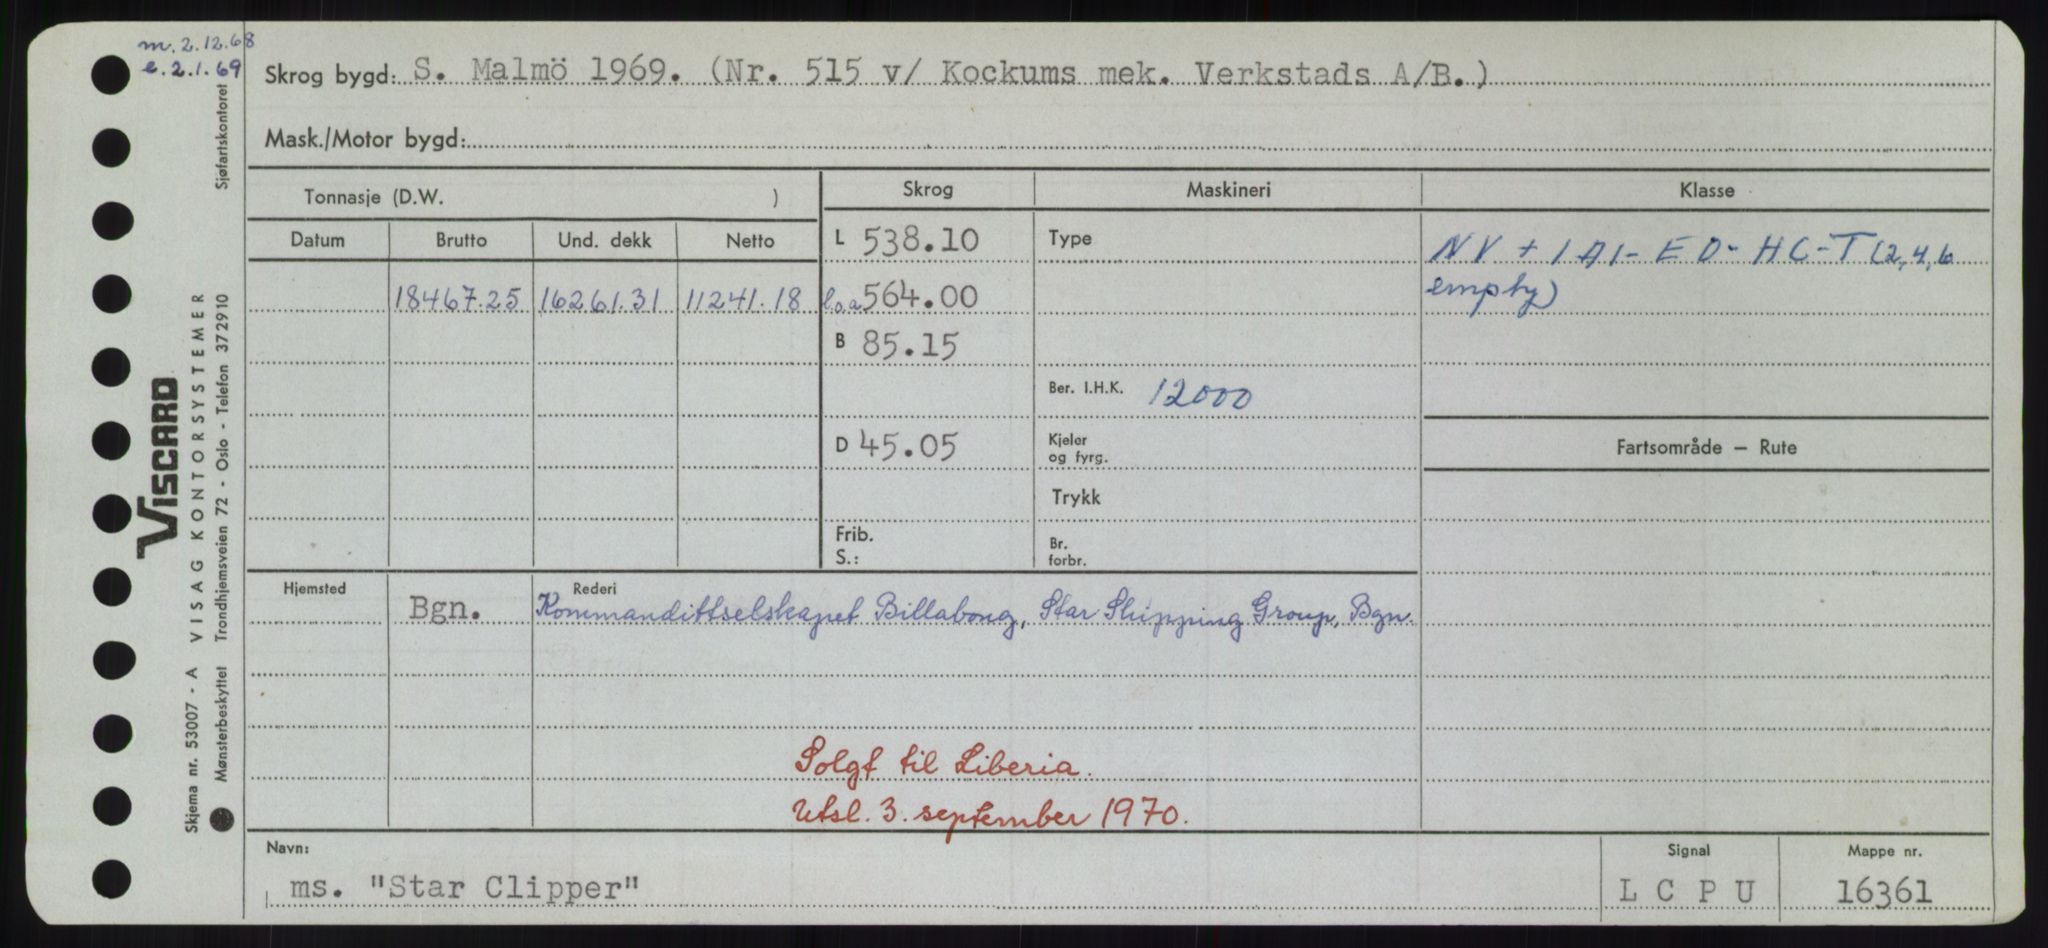 m. 2.12.68
e. 2.1.69
Skrog bygd: S. Malmö 1969. (Nr. 515 v/ Kockums mek. Verkstads A/B.)
Mask./Motor bygd:
Tonnasje (D.W. )
Skrog
Maskineri
Klasse
Datum
Brutto
Und. dekk
Netto
L 538.10
Type
NV + 1A1- EO- HC-T (2,4,6
empty)
18467.25 16261.31 11241.18
l.o.a 564.00
B 85.15
Ber. I.H.K. 12000
D 45.05
Kjeler
og fyrg.
Fartsområde – Rute
Trykk
Frib.
S.:
Br.
forbr.
Hjemsted
Rederi
Bgn. Kommandittselskapet Billabong, Star Shipping Group, Bgn.
Solgt til Liberia.
Utsl. 3. september 1970.
Navn:
ms. "Star Clipper"
Signal
L C P U
Mappe nr.
16361
VISCARD
Skjema nr. 53007 - A VISAG KONTORSYSTEMER
Mønsterbeskyttet Trondhjemsveien 72 - Oslo - Telefon 372910 Sjøfartskontoret